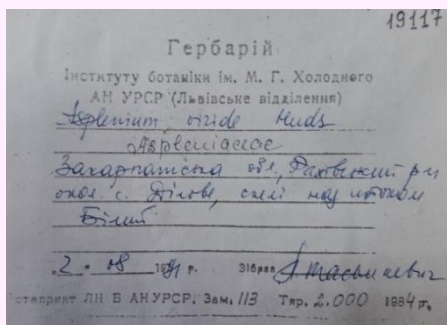 19117
Гербарій
Інституту ботаніки ім. М. Г. Холодного
АН УРСР (Львівське відділення)
Asplenium viride Huds
Aspleniaceae
Закарпатська обл, Рахівський р-н
окол. с. Ділове, скелі над потоком
Білий
"2" 08 19 р. Зібрав
Ротапринт ЛН Б АН УРСР. Зам. 113 Тир. 2.000 1984 г.